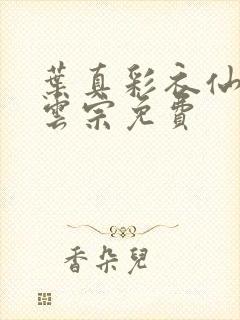 葉真彩衣仙
雲宗免費
香朵兒